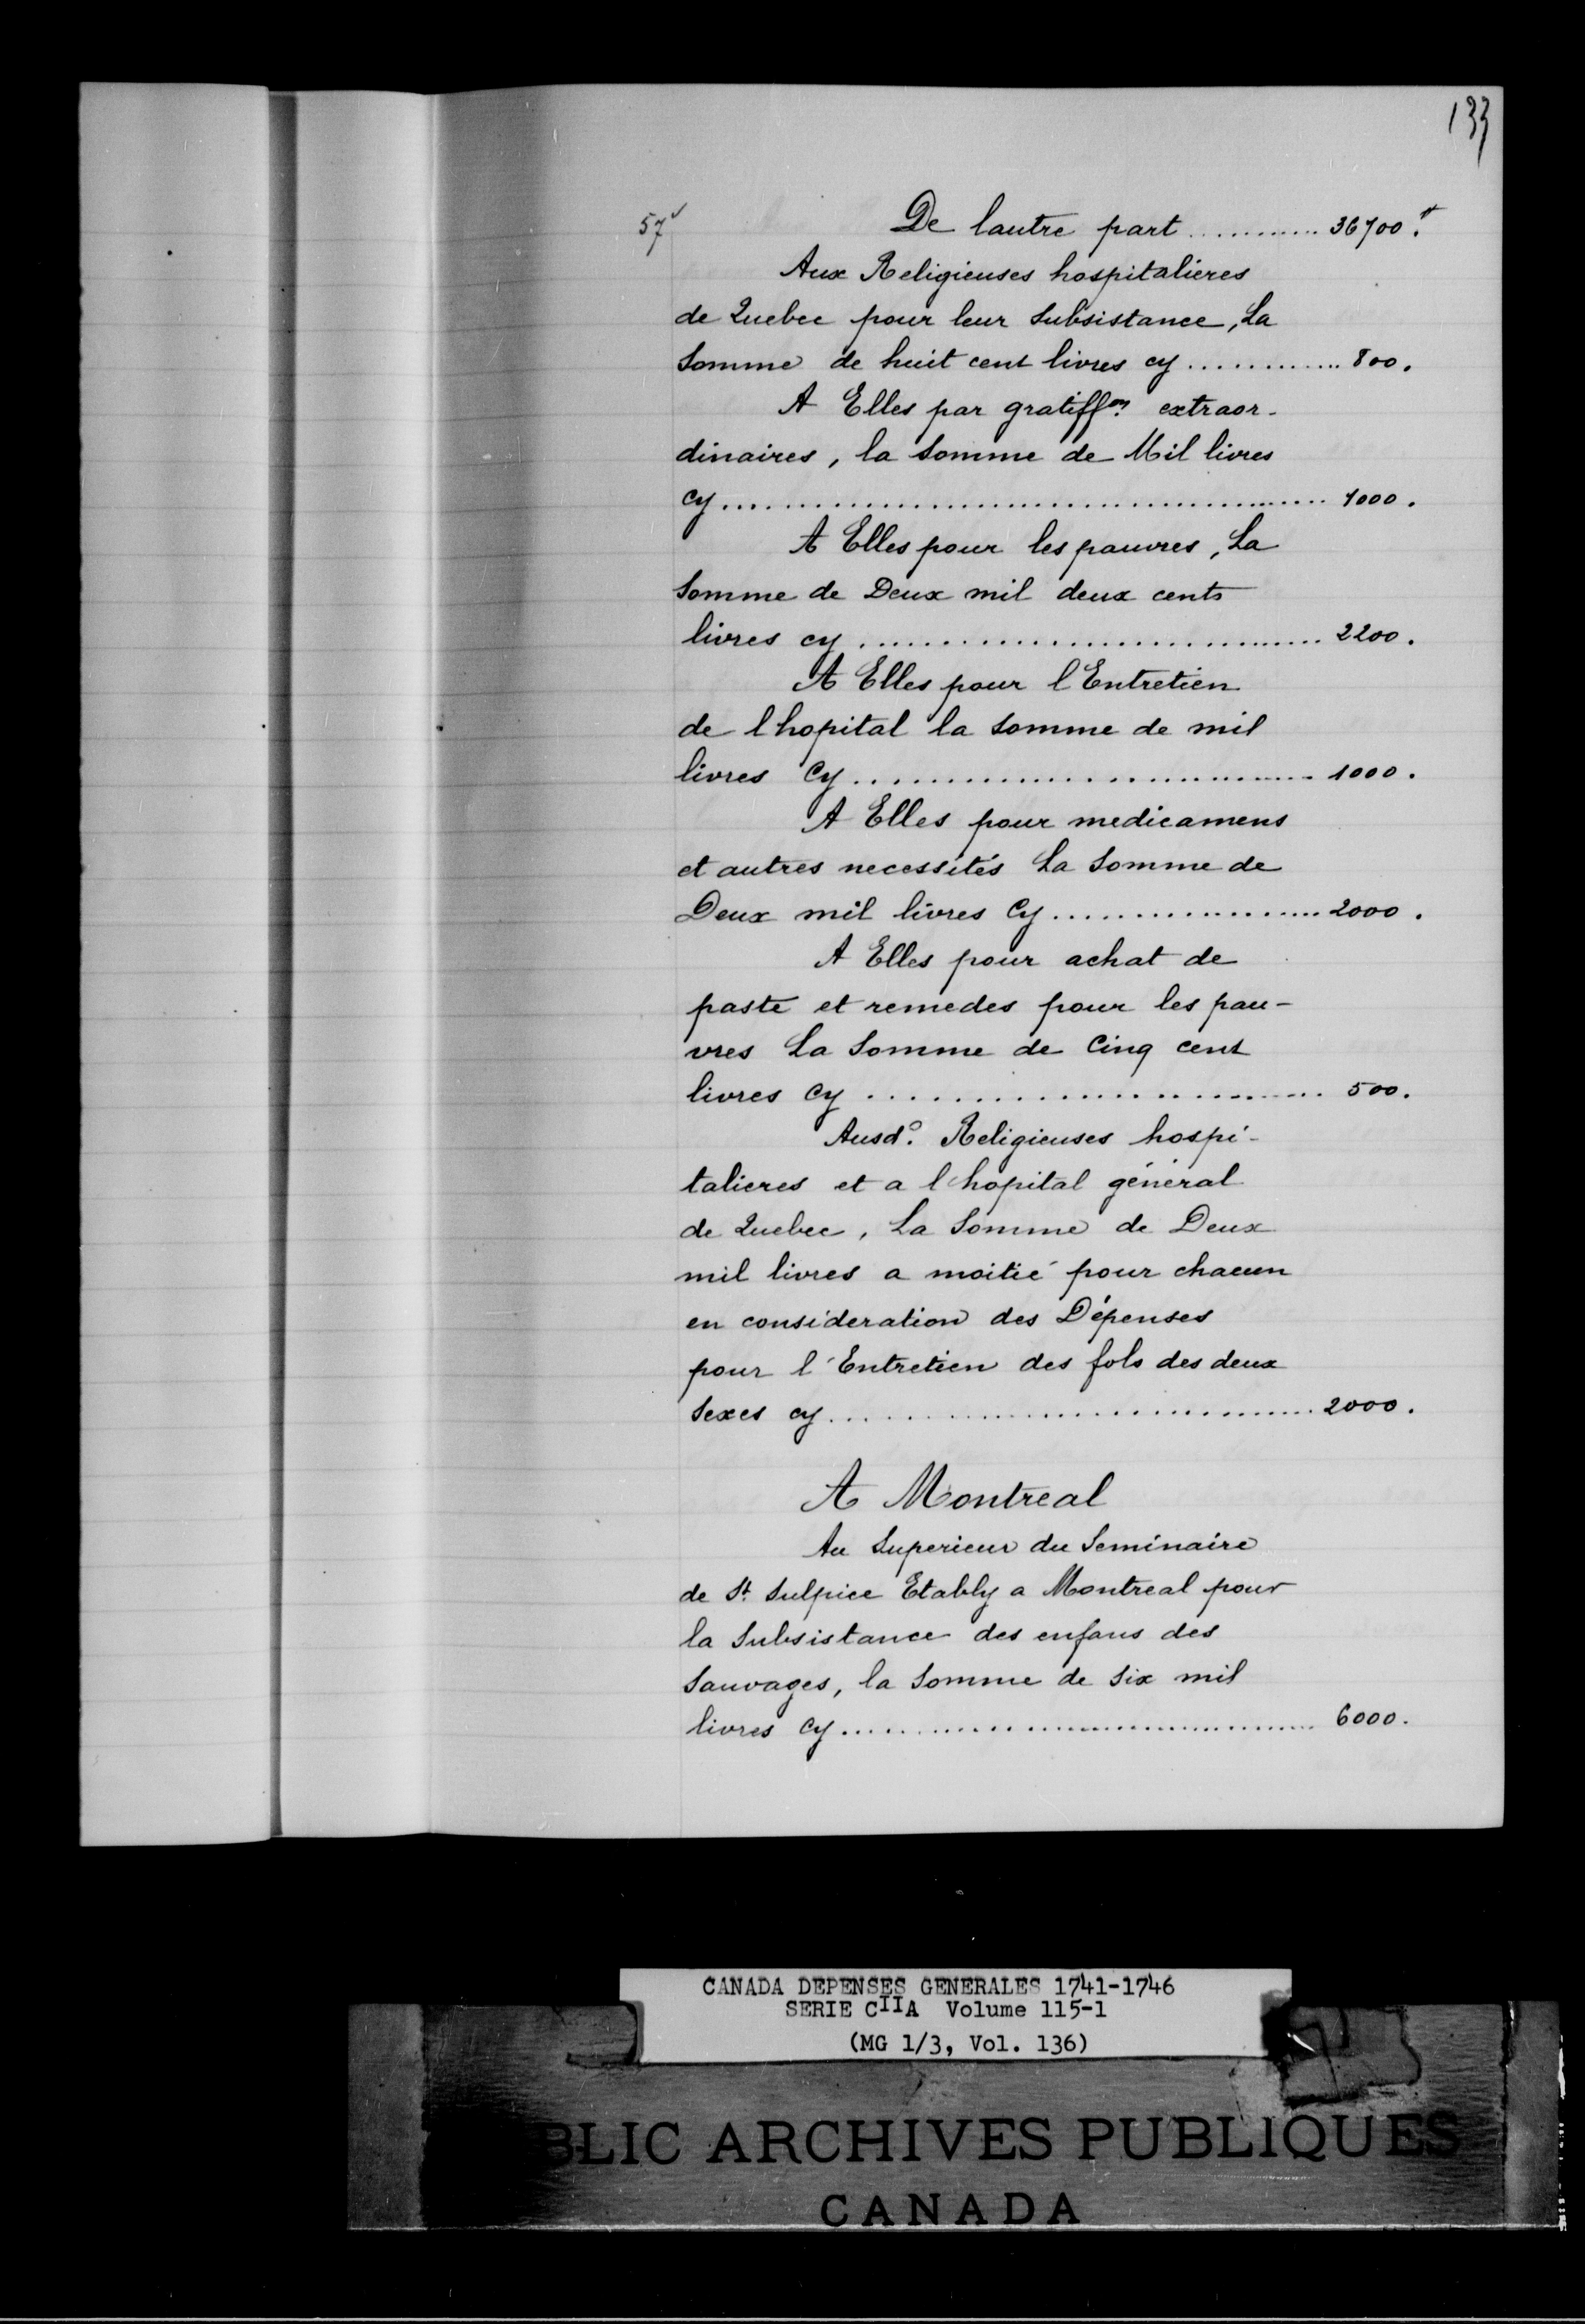 133
57v
De lautre part ............ 36700.
Aux Religieuses hospitalieres
de Quebec pour leur Subsistance, La
Somme de huit cent livres cy ............ 800.
A Elles par gratiffon. extraor-
dinaires, la Somme de Mil livres
cy ............ 1000.
A Elles pour les pauvres, La
Somme de Deux mil deux cents
livres cy ............ 2200.
A Elles pour l'Entretien
de lhopital la Somme de mil
livres Cy ............ 1000.
A Elles pour medicamens
et autres necessités La Somme de
Deux mil livres Cy ............ 2000.
A Elles pour achat de
paste et remedes pour les pau-
vres La Somme de Cinq cent
livres Cy ............ 500.
Ausd. Religieuses hospi-
talieres et a lhopital général
de Quebec, La Somme de Deux
mil livres a moitié pour chacun
en consideration des Dépenses
pour l'Entretien des fols des deux
Sexes cy ............ 2000.
A Montreal
Au Superieur du Seminaire
de St. Sulpice Etably a Montreal pour
la Subsistance des enfans des
Sauvages, la Somme de Six mil
livres Cy ............ 6000.
CANADA DEPENSES GENERALES 1741-1746
SERIE CIIA Volume 115-1
(MG 1/3, Vol. 136)
BLIC ARCHIVES PUBLIQUES
CANADA